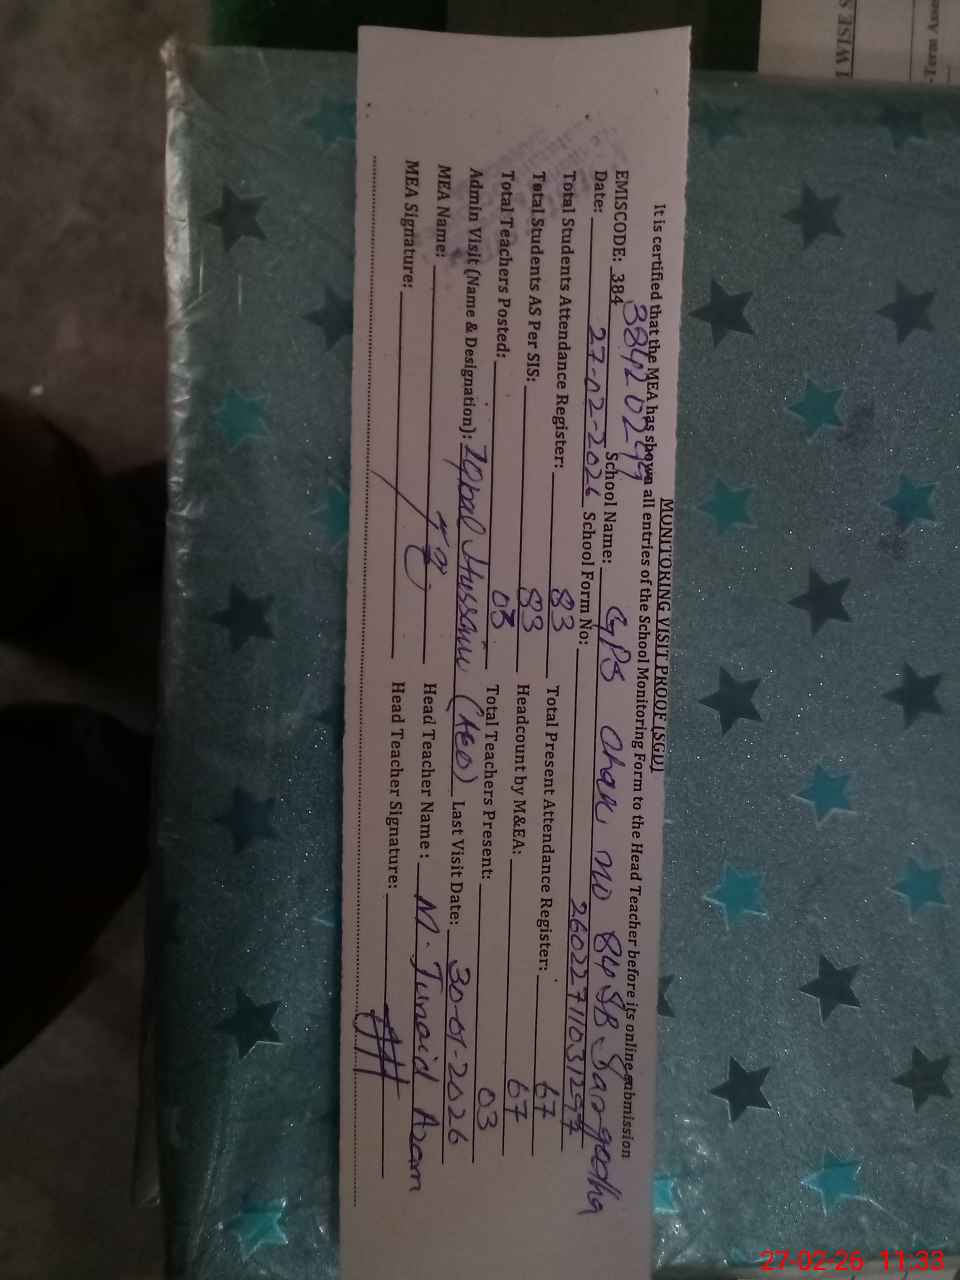 MONITORING VISIT PROOF (SGD)
It is certified that the MEA has shown all entries of the School Monitoring Form to the Head Teacher before its online submission
EMISCODE: 384 38420299 School Name: GPS Chak no 84 SB Sargodha
Date: 27-02-2026 School Form No: 26022711031297
Total Students Attendance Register: 83 Total Present Attendance Register: 67
Total Students AS Per SIS: 83 Headcount by M&EA: 67
Total Teachers Posted: 03 Total Teachers Present: 03
Admin Visit (Name & Designation): Iqbal Hussain (AEO) Last Visit Date: 30-01-2026
MEA Name: Head Teacher Name: M. Junaid Azam
MEA Signature: Head Teacher Signature:
LWISE S
Term Ass
27-02-26 11:33